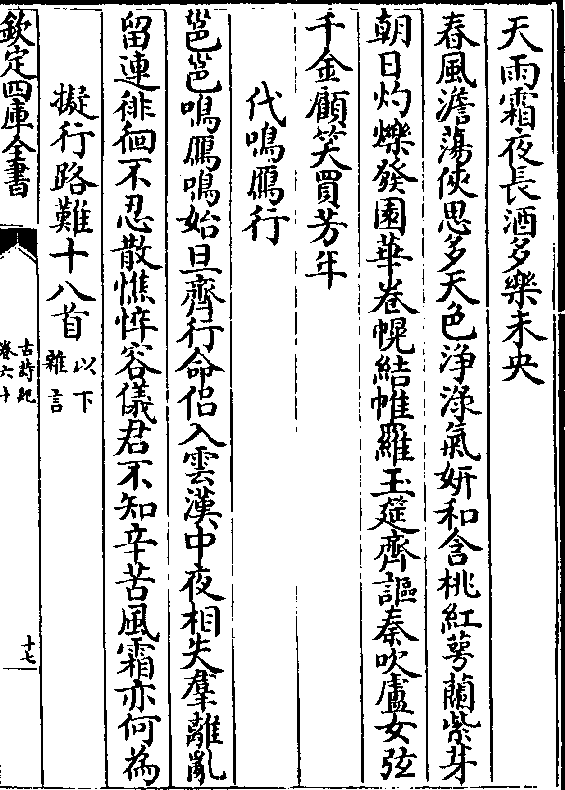 天雨霜夜長酒多樂未央
春風澹蕩俠思多天色浄渌氣妍和含桃紅萼蘭紫芽
朝日灼爍發園華卷幌結帷羅玉筵齊謳秦吹盧女弦
千金顧笑買芳年
代鳴鴈行
邕邕鳴鴈鳴始旦齊行命侣入雲漢中夜相失羣離亂
留連徘徊不忍散憔悴容儀君不知辛苦風霜亦何為
擬行路難十八首以下雜言
欽定四庫全書
古詩紀
卷六十
十七